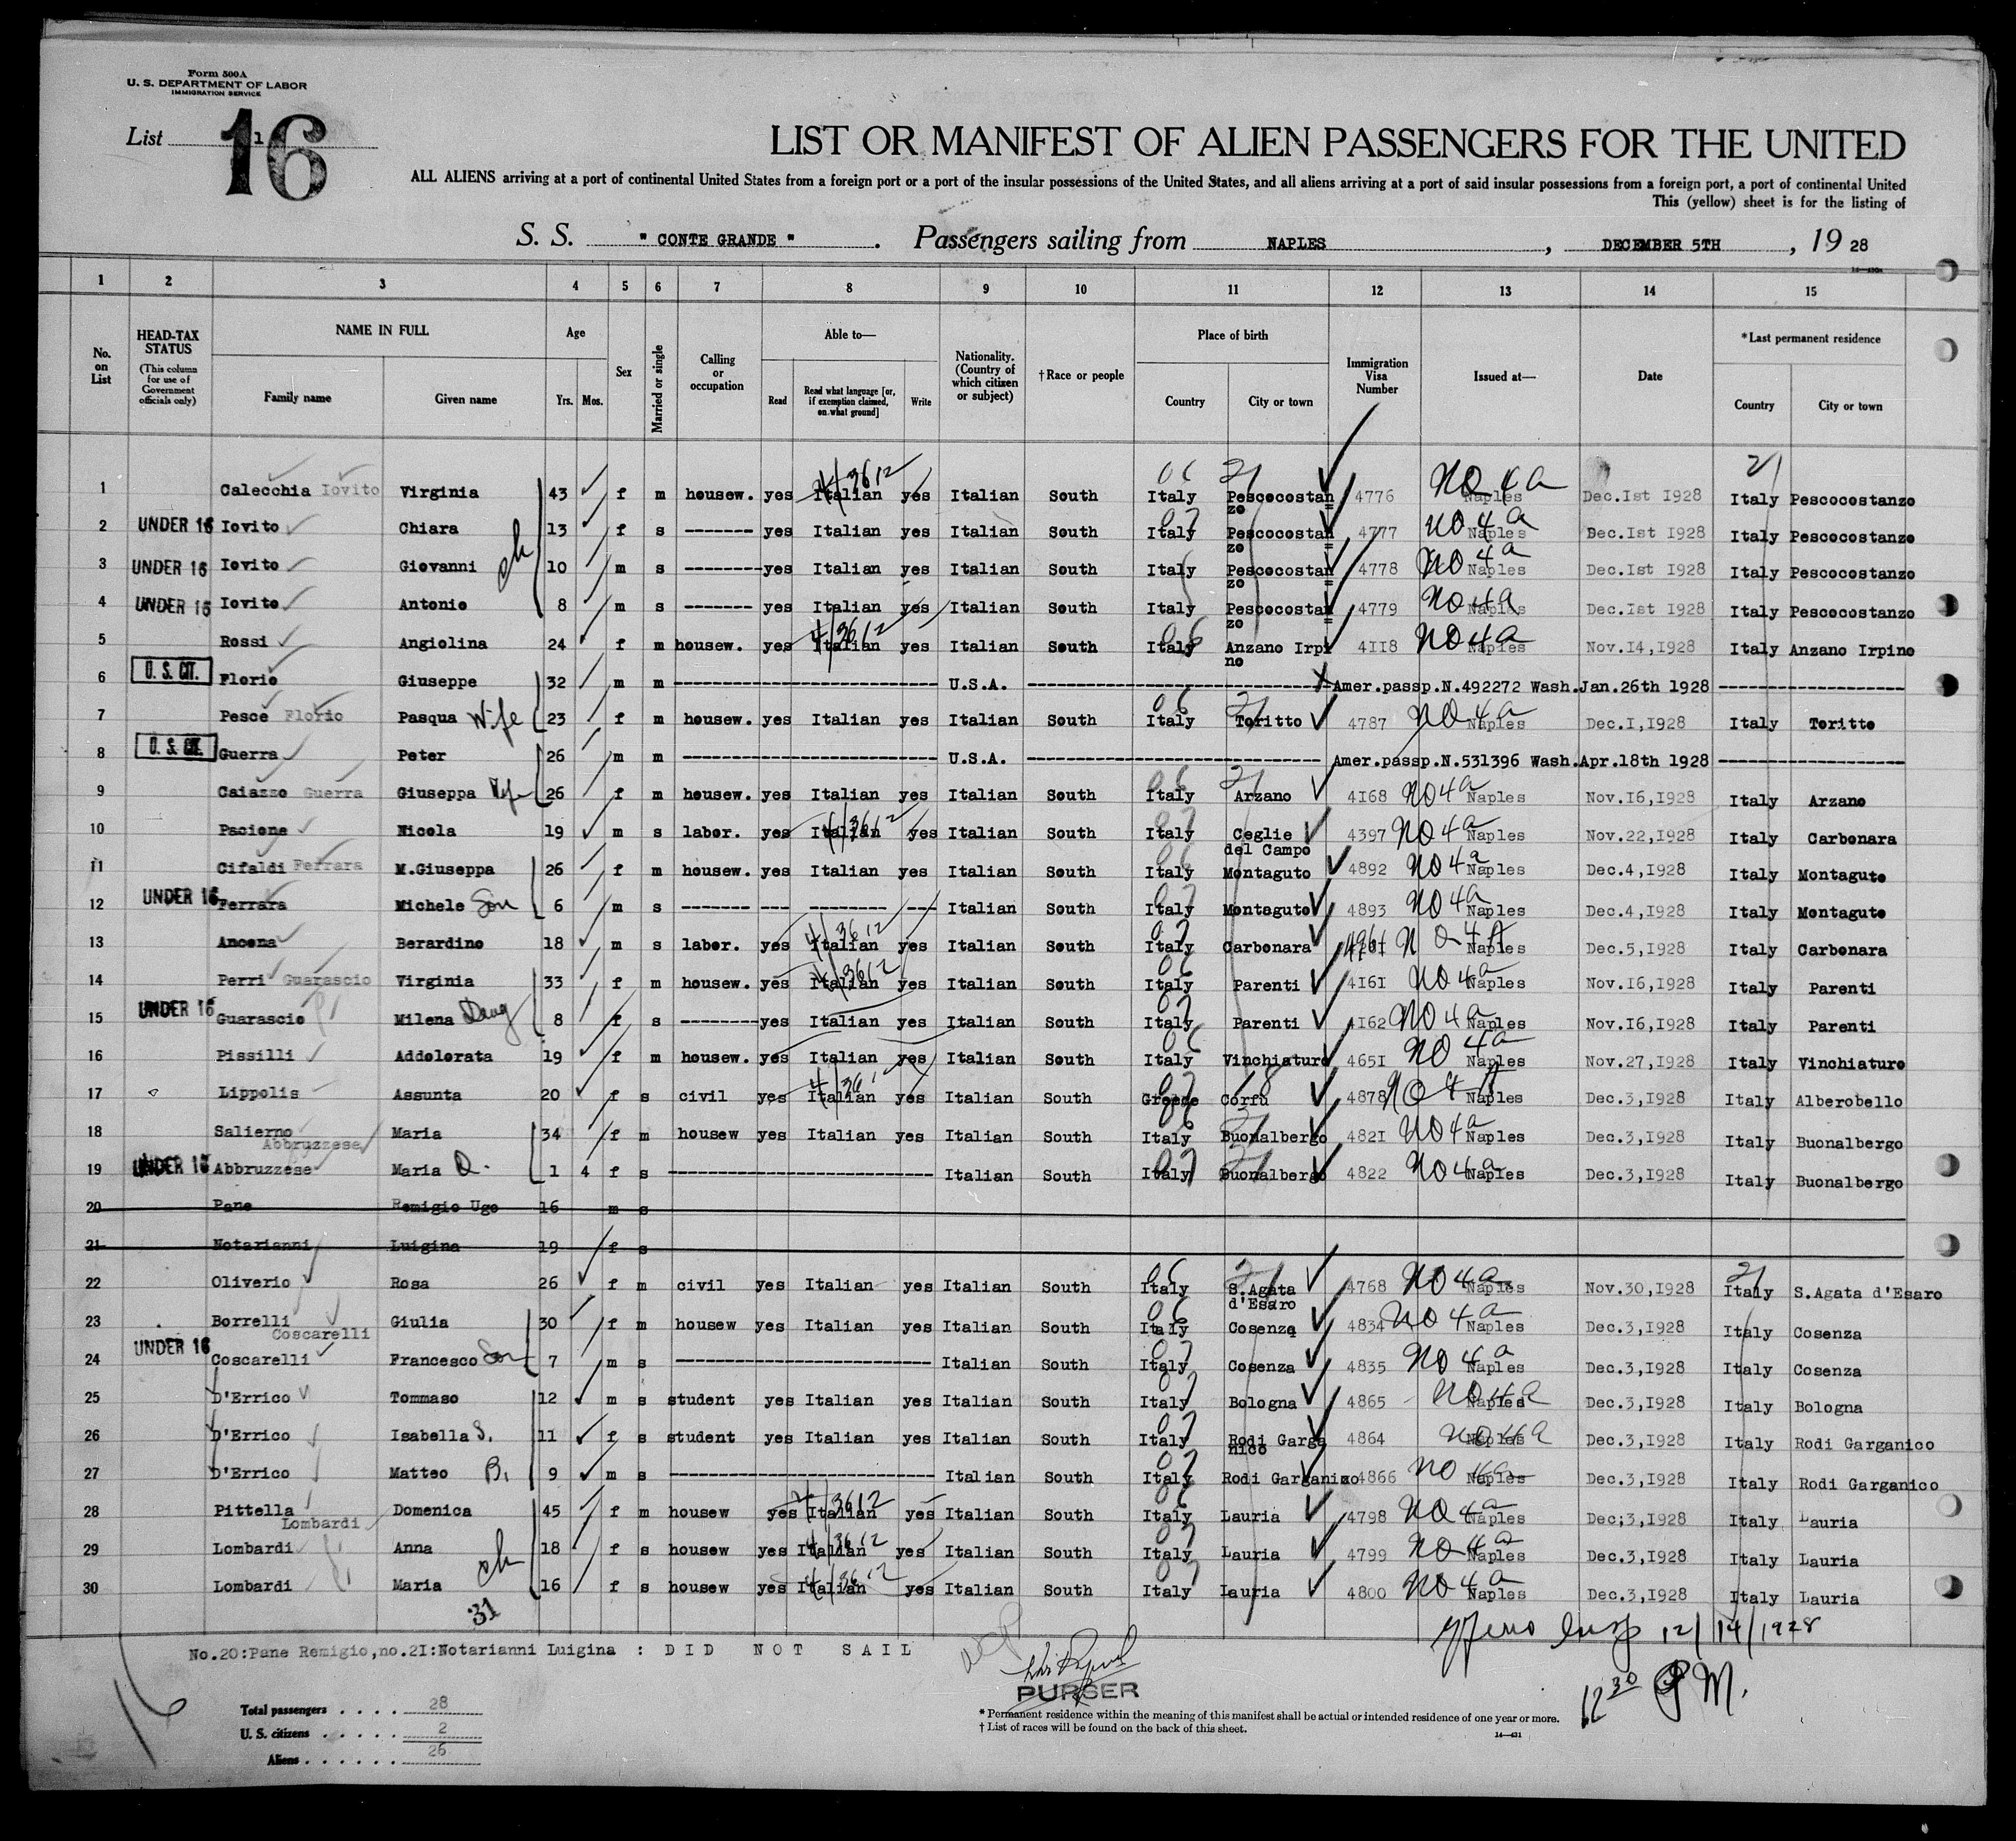 Form 500A
U. S. DEPARTMENT OF LABOR
IMMIGRATION SERVICE
List 1
16
LIST OR MANIFEST OF ALIEN PASSENGERS FOR THE UNITED
ALL ALIENS arriving at a port of continental United States from a foreign port or a port of the insular possessions of the United States, and all aliens arriving at a port of said insular possessions from a foreign port, a port of continental United
This (yellow) sheet is for the listing of
S. S. " CONTE GRANDE " . Passengers sailing from NAPLES , DECEMBER 5TH , 19 28
1 2 3 4 5 6 7 8 9 10 11 12 13 14 15
No. on List
HEAD-TAX STATUS (This column for use of Government officials only)
NAME IN FULL Family name Given name
Age Yrs. Mos.
Sex
Married or single
Calling or occupation
Able to— Read Read what language [or, if exemption claimed, on what ground] Write
Nationality. (Country of which citizen or subject)
†Race or people
Place of birth Country City or town
Immigration Visa Number
Issued at—
Date
*Last permanent residence Country City or town
1 Calecchia Iovito Virginia 43 f m housew. yes Italian yes Italian South Italy Pescocostan= zo 4776 Naples NO 4a Dec.Ist I928 Italy Pescocostanzo
2 UNDER 16 Iovito Chiara 13 f s ------- yes Italian yes Italian South Italy Pescocostan= zo 4777 Naples NO 4a Dec.Ist I928 Italy Pescocostanzo
3 UNDER 16 Iovito Giovanni ch 10 m s --------yes Italian yes Italian South Italy Pescocostan= zo 4778 Naples NO 4a Dec.Ist I928 Italy Pescocostanzo
4 UNDER 16 Iovito Antonio 8 m s ------- yes Italian yes Italian South Italy Pescocostan= zo 4779 Naples NO 4a Dec.Ist I928 Italy Pescocostanzo
5 Rossi Angiolina 24 f m housew. yes Italian yes Italian South Italy Anzano Irpino 4II8 Naples NO 4a Nov.I4,I928 Italy Anzano Irpino
6 U. S. CIT. Florio Giuseppe 32 m m -------- U.S.A. -------- Amer.passp.N.492272 Wash.Jan.26th 1928 --------
7 Pesce Florio Pasqua Wife 23 f m housew. yes Italian yes Italian South Italy Toritto 4787 Naples NO 4a Dec.I,I928 Italy Toritto
8 U. S. CIT. Guerra Peter 26 m m -------- U.S.A. -------- Amer.passp.N.531396 Wash.Apr.18th 1928 --------
9 Caiazzo Guerra Giuseppa Wife 26 f m housew. yes Italian yes Italian South Italy Arzano 4I68 Naples NO 4a Nov.I6,I928 Italy Arzano
10 Pacione Nicola 19 m s labor. yes Italian yes Italian South Italy Ceglie del Campo 4397 Naples NO 4a Nov.22,I928 Italy Carbonara
11 Cifaldi Ferrara M.Giuseppa 26 f m housew. yes Italian yes Italian South Italy Montaguto 4892 Naples NO 4a Dec.4,I928 Italy Montaguto
12 UNDER 16 Ferrara Michele Son 6 m s ------- --- -------- --- Italian South Italy Montaguto 4893 Naples NO 4a Dec.4,I928 Italy Montaguto
13 Ancona Berardino 18 m s labor. yes Italian yes Italian South Italy Carbonara Naples NO 4A Dec.5,I928 Italy Carbonara
14 Perri Guarascio Virginia 33 f m housew. yes Italian yes Italian South Italy Parenti 4I6I Naples NO 4a Nov.I6,I928 Italy Parenti
15 UNDER 16 Guarascio Milena Daug 8 f s --------yes Italian yes Italian South Italy Parenti 4I62 Naples NO 4a Nov.I6,I928 Italy Parenti
16 Pissilli Addolorata 19 f m housew. yes Italian yes Italian South Italy Vinchiaturo 465I Naples NO 4a Nov.27,I928 Italy Vinchiaturo
17 Lippolis Assunta 20 f s civil yes Italian yes Italian South Greece Corfu 4878 Naples NO 4A Dec.3,I928 Italy Alberobello
18 Salierno Abbruzzese Maria 34 f m housew yes Italian yes Italian South Italy Buonalbergo 482I Naples NO 4a Dec.3,I928 Italy Buonalbergo
19 UNDER 16 Abbruzzese Maria D. 1 4 f s -------- Italian South Italy Buonalbergo 4822 Naples NO 4a Dec.3,I928 Italy Buonalbergo
20 Pane Remigio Ugo 16 m s
21 Notarianni Luigina 19 f s
22 Oliverio Rosa 26 f m civil yes Italian yes Italian South Italy S.Agata d'Esaro 4768 Naples NO 4a Nov.30,I928 Italy S.Agata d'Esaro
23 Borrelli Coscarelli Giulia 30 f m housew yes Italian yes Italian South Italy Cosenza 4834 Naples NO 4a Dec.3,I928 Italy Cosenza
24 UNDER 16 Coscarelli Francesco Son 7 m s -------- Italian South Italy Cosenza 4835 Naples NO 4a Dec.3,I928 Italy Cosenza
25 D'Errico Tommaso 12 m s student yes Italian yes Italian South Italy Bologna 4865 Naples NO 4a Dec.3,I928 Italy Bologna
26 D'Errico Isabella S. 11 f s student yes Italian yes Italian South Italy Rodi Garganico 4864 Naples NO 4a Dec.3,I928 Italy Rodi Garganico
27 D'Errico Matteo B. 9 m s -------- Italian South Italy Rodi Garganico 4866 Naples NO 4a Dec.3,I928 Italy Rodi Garganico
28 Pittella Lombardi Domenica 45 f m housew yes Italian yes Italian South Italy Lauria 4798 Naples NO 4a Dec;3,I928 Italy Lauria
29 Lombardi Anna ch 18 f s housew yes Italian yes Italian South Italy Lauria 4799 Naples NO 4a Dec.3,I928 Italy Lauria
30 Lombardi Maria 16 f s housew yes Italian yes Italian South Italy Lauria 4800 Naples NO 4a Dec.3,I928 Italy Lauria
31
12/14/1928
No.20:Pane Remigio,no.2I:Notarianni Luigina : DID NOT SAIL
12 30 PM.
PURSER
16
Total passengers . . . . 28
U. S. citizens . . . . . 2
Aliens . . . . . . 26
* Permanent residence within the meaning of this manifest shall be actual or intended residence of one year or more.
† List of races will be found on the back of this sheet.
14—431